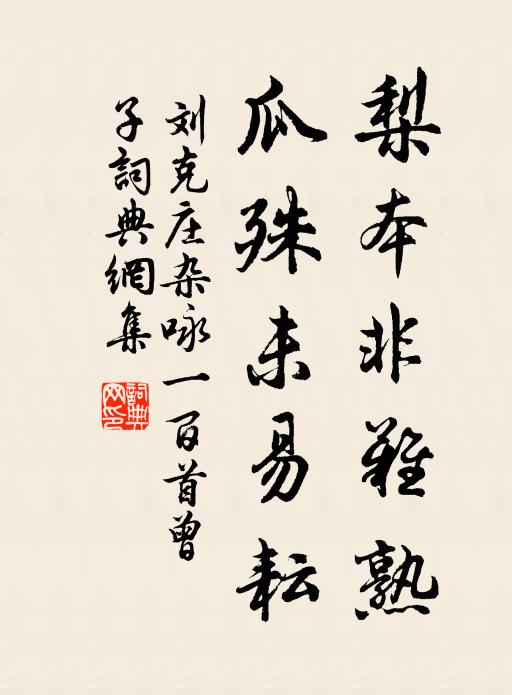 梨本非難熟
瓜殊未易耘
刘克庄杂咏一百首曾
子詞典網集
詞典
网印